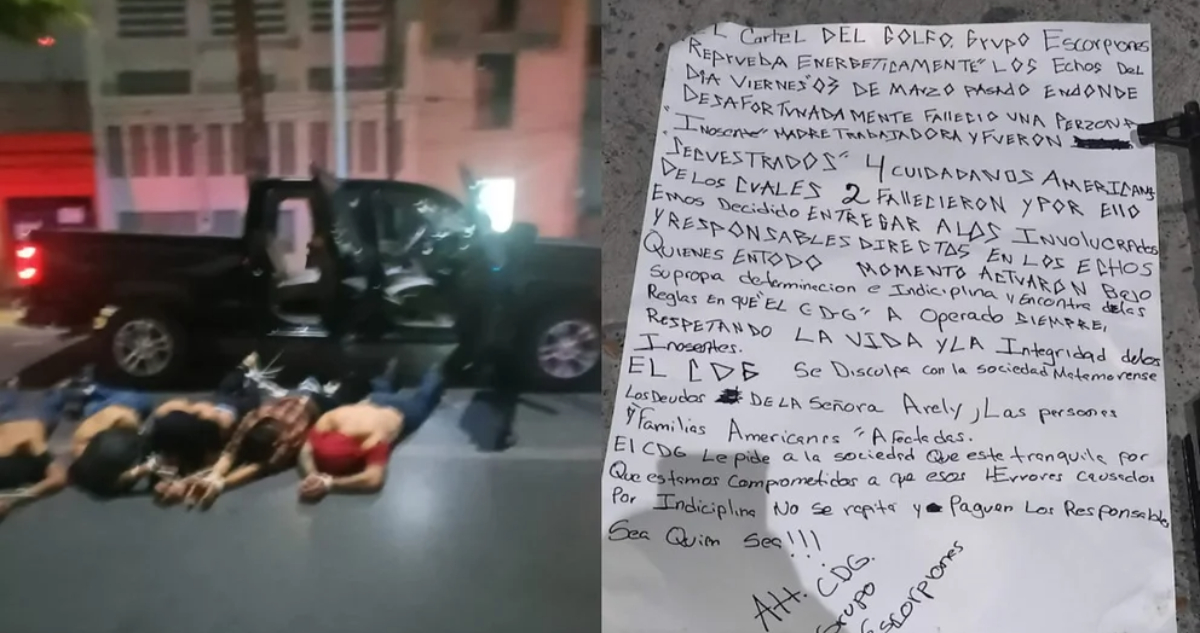 L Cartel DEL GOLFO. Grupo Escorpiones
REPRUEBA ENERGETICAMENTE" LOS Echos Del
DIA VIERNES "03 DE MARZO PASADO ENDONDE
DESAFORTUNADAMENTE FALLECIO UNA PERZONA
"INosente" MADRE TRABAJADORA Y FUERON
"SECUESTRADOS" 4 CUIDADANOS AMERICANS
DE LOS CUALES 2 FALLECIERON Y POR EllO
EMOS DecidIdo ENTREGAR A LOS INVOLUCRAdos
Y RESPONSABLES DIRECTOS EN LOS ECHOS
QUIENES EN TODO MOMENTO ACTUARON BAJO
Su propa determinacion e Indiciplina y Encontra de las
Reglas En que "EL CDG" A Operado SIEMPRE,
RESPETANDO LA VIDA Y LA Integridad de los
Inosentes.
EL CDG Se Disculpa con la sociedad Matamorense
Los Deudos DE LA Señora Arely, Las personas
y Familias Americanas "Afectadas.
El CDG Le pide a la sociedad Que este tranquila por
Que estamos comprometidos a que esos Errores Causados
Por Indiciplina No se repita y Paguen Los Responsables
Sea Quien Sea!!!
Att. CDG.
Grupo
Escorpiones